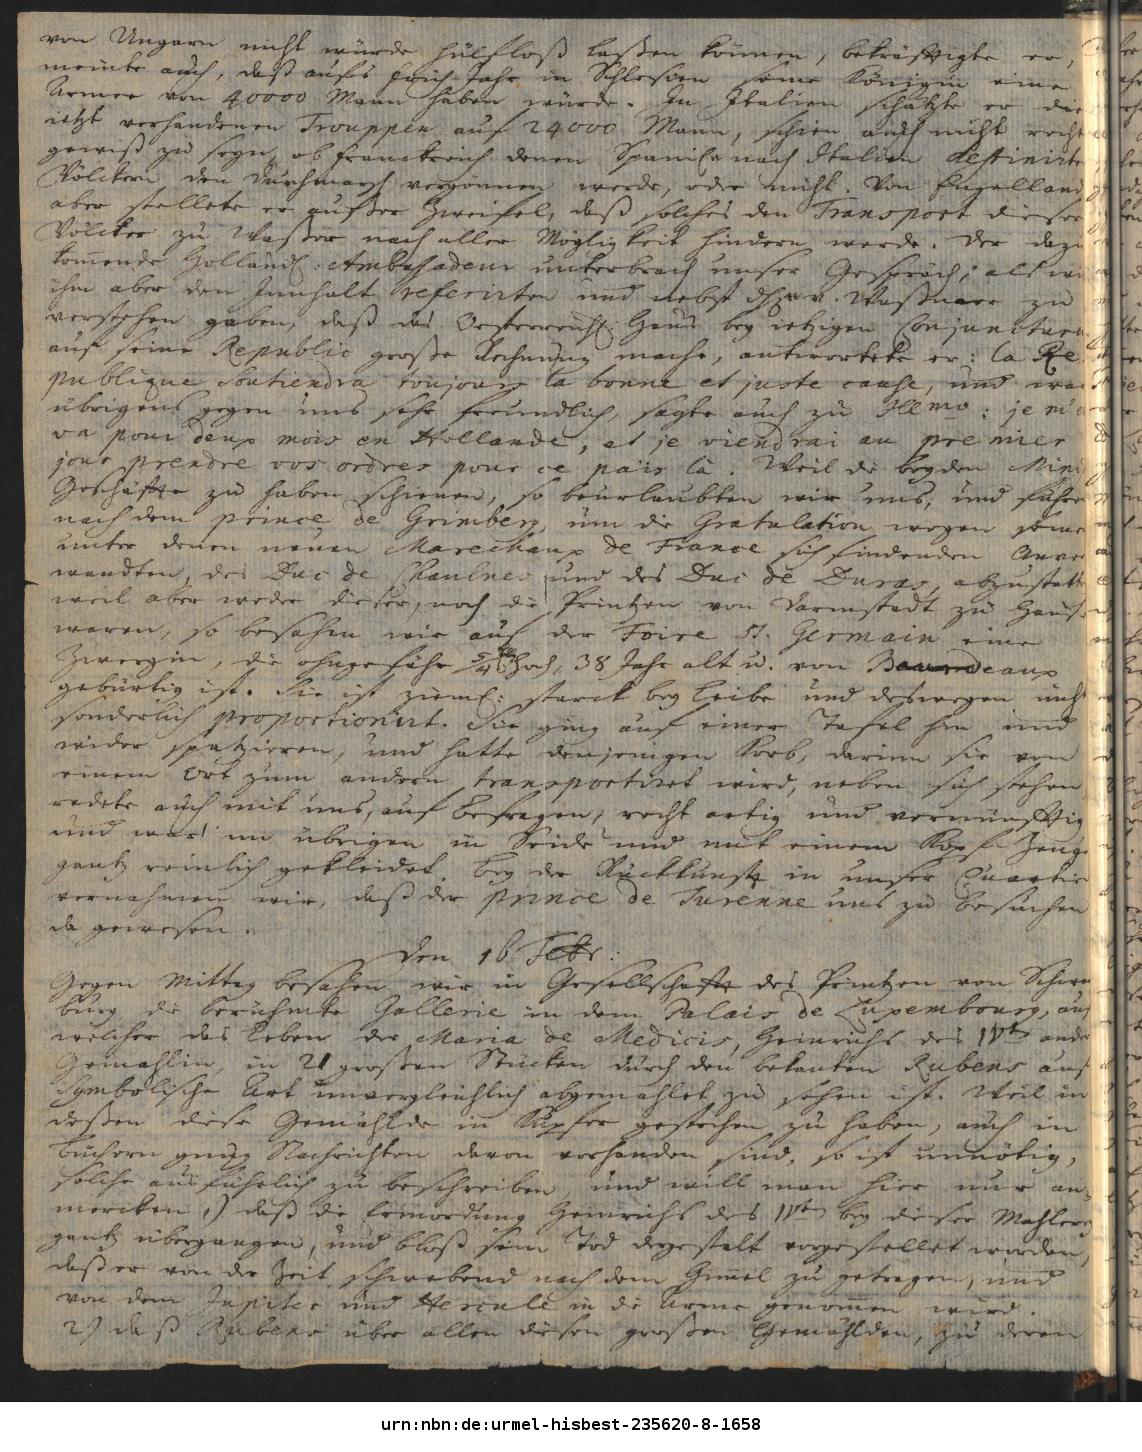 von Ungarn nicht würde hülfloß laßen können, bekräfftigte er,
meinte auch, daß aufs früh-Jahr in Schlesien seine Königin eine
Armee von 40000 Mann haben würde. In Italien schätzte er die
ietzt vorhandenen Trouppen auf 24000 Mann, schien auch nicht recht
gewiß zu seyn, ob Franckreich denen Spanisch. nach Italien destinirte
Völckern den Durchmarsch vergönnen werde, oder nicht. Von Engelland
aber stellete er außer Zweifel, daß solches den Transport dieser
Völcker zu Waßer nach aller Mögligkeit hindern werde. Der dazu
komende Holländ: Ambassadeur unterbrach unser Gespräch; als wir
ihm aber den Innhalt referirten und nebst v. Waßner zu
verstehen gaben, daß das Oesterreich: Haus bey ietzigen Conjuncturen
auf seine Republic große Rechnung mache, antwortete er: la Re
publique soutiendra toujours la bonne et juste cause, und war
übrigens gegen uns sehr freundlich, sagte auch zu Illmo: je m'en
va pour deux mois en Hollande, et je viendrai au premier
jour prendre vos ordres pour ce païs là. Weil die beyden Mini
Geschäffte zu haben schienen, so beurlaubten wir uns, und fuhren
nach dem prince de Grimberg, um die Gratulation wegen seiner
unter denen neuen Marechaux de France sich findenden Anver
wandten, des Duc de Chaulnes und des Duc de Duras, abzustatten
weil aber weder dieser, noch die Printzen von Darmstadt zu Hause
waren, so besahen wir auf der Foire St. Germain eine
Zwergin, die ohngefähr 5/4 hoch, 38 Jahr alt u. von Bourdeaux
gebürtig ist. Sie ist zieml: starck bey Leibe und deswegen nicht
sonderlich proportionirt. Sie ging auf einer Tafel hin und
wider spatzieren, und hatte denjenigen Korb, darinn sie von
einem Ort zum andern transportiret wird, neben sich stehen,
redete auch mit uns, auf befragen, recht artig und vernünfftig
und war im übrigen in Seide und mit einem Kopf-Zeuge
gantz reinlich gekleidet. Bey der Rückkunft in unser Quartier
vernahmen wir, daß der prince de Turenne uns zu besuchen
da gewesen.
Den 16 Febr:
Gegen Mittag besahen wir in Gesellschafft des Printzen von Schwar
burg die berühmte Gallerie in dem Palais de Luxembourg, auf
welcher das Leben der Maria de Medicis, Heinrichs des IVten ander
Gemahlin, in 21 großen Stücken durch den bekanten Rubens auf
Symbolische Art unvergleichlich abgemahlet zu sehen ist. Weil in
deßen diese Gemählde in Kupfer gestochen zu haben, auch in
büchern gnug Nachrichten davon vorhanden sind, so ist unnötig,
solche ausführlich zu beschreiben, und will man hier nur an
mercken 1) daß die Ermordung Heinrichs des IVten bey dieser Mahlerey
gantz übergangen, und bloß sein Tod dergestalt vorgestellet worden,
daß er von der Zeit schwebend nach dem Himel zu getragen, und
von dem Jupiter und Hercule in die Arme genomen wird.
2) daß Rubens über allen diesen großen Gemählden, zu deren
urn:nbn:de:urmel-hisbest-235620-8-1658